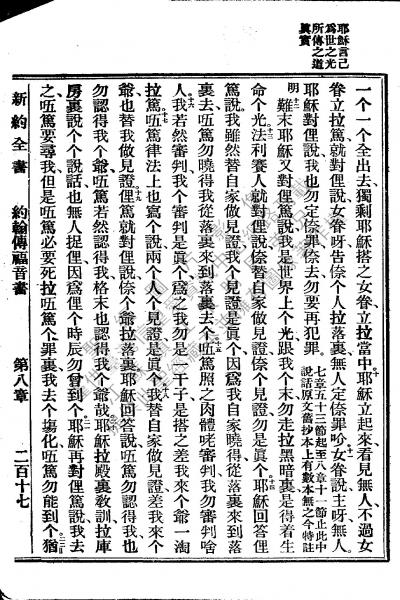 耶穌言己
爲世之光
所傳之道
眞實
一个一个全出去獨剩耶穌搭之女眷立拉當中耶穌立起來看見無人不過女
眷立拉篤就對俚說女眷呀告倷个人拉落裏無人定倷罪吤女眷說主呀無人
耶穌對俚說我也勿定倷罪倷去勿要再犯罪
七章五十三節起至八章十一節止此中
說話原文舊抄本上有數本無之今特註
明難末耶穌又對俚篤說我是世界上个光跟我个末勿走拉黑暗裏是得着生
命个光法利賽人就對俚說倷替自家做見證倷个見證勿是眞个耶穌回答俚
篤說我雖然替自家做見證我个見證是眞个因爲我自家曉得從落裏來到落
裏去㕶篤勿曉得我從落裏來到落裏去个㕶篤照之肉體咾審判我勿審判啥
人我若然審判我个審判是眞个爲之我勿是一干子是搭之差我來个爺一淘
拉㕶篤律法上也寫个說兩个人个見證是眞个我替自家做見證差我來个
爺也替我做見證俚篤就對俚說倷个爺拉落裏耶穌回答說㕶篤勿認得我也
勿認得我个爺㕶篤若然認得我格末也認得我个爺哉耶穌拉殿裏教訓拉庫
房裏說个个說話也無人捉俚因爲俚个時辰勿曾到个耶穌再對俚篤說我去
之㕶篤要尋我但是㕶篤必要死拉㕶篤个罪裏我去个塲化㕶篤勿能到个猶
新約全書 約翰傳福音書 第八章 二百十七